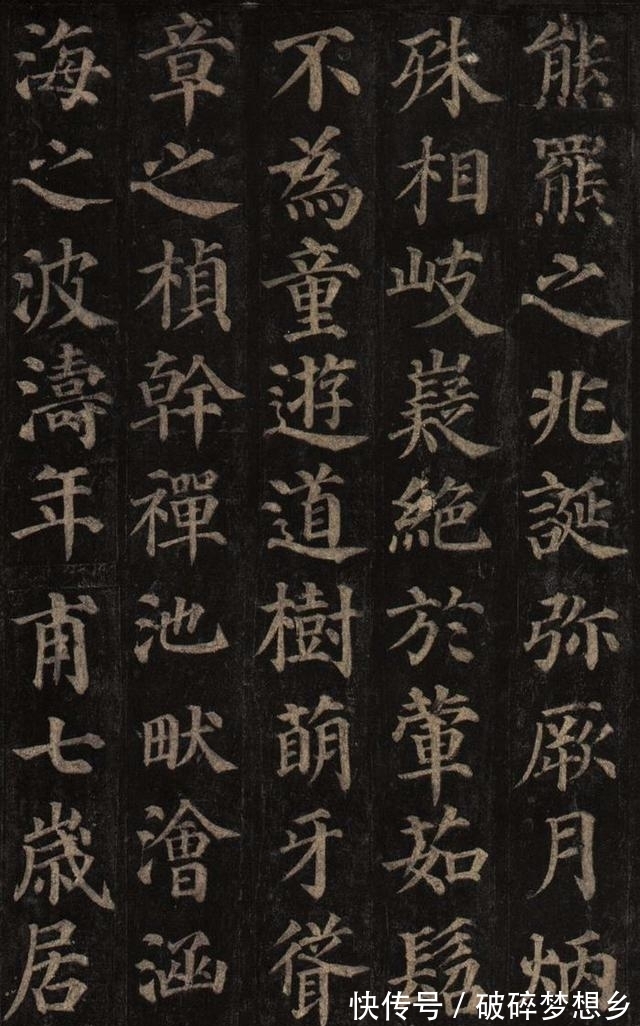 熊羆之兆誕弥厥月炳
殊相岐嶷絶於葷茹髫
不為童遊道樹萌牙聳
章之楨幹禪池畎澮涵
海之波濤年甫七歲居
快传号 / 破碎梦想乡